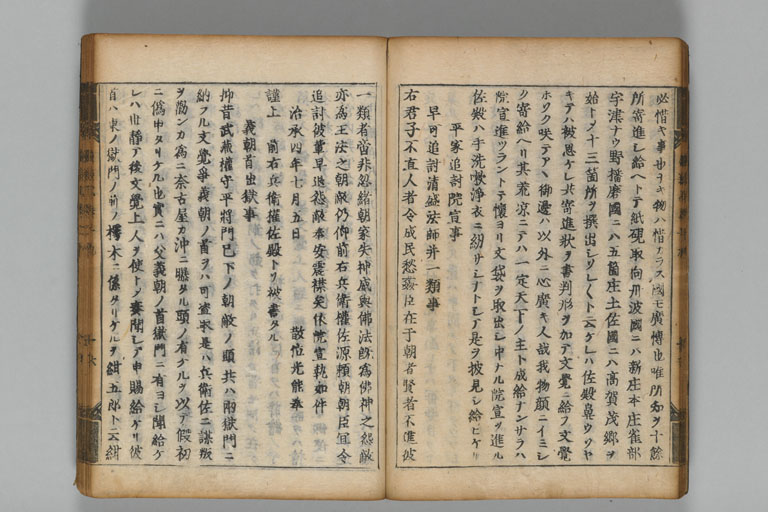 必惜キ事也ヨキ物ハ惜カラス國モ廣博也唯所知ヲ十餘
所寄進シ給ヘトテ紙硯取向丹波國ニハ新庄本庄雀部
宇津ナウ野播磨國ニハ五箇庄土佐國ニハ高賀茂郷ヲ
始トグ十三箇所ヲ撰出シツレ〱ト云ケレハ佐殿鼻ウソヤ
キテハ被思ケレ共寄進状ヲ書判形ヲ加テ文覺ニ給フ文覺
ホクソ咲テアハ御邊ハ以外ニ心廣キ人哉我物顔ニイミシ
ク寄給ヘリ其荒凉ニテハ一定天下ノ主ト成給ナンサラハ
院宣進ツラントテ懷ヨリ文袋ヲ取出シ中ナル院宣ヲ進ル
佐殿ハ手洗嗽浄衣ニ紐サシナトシテ是ヲ披見シ給ヒケリ
平家追討院宣事
早可追討清盛法師并一類事
右君子不直人者令成民愁姦臣在于朝者賢者不進彼
一類者啻非忽緒朝家失神威與佛法既為佛神之怨敵
亦為王法之朝敵仍仰前右兵衛權佐源頼朝朝臣宜令
追討彼輩早退怨敵奉安震襟矣依院宣執如件
治承四年七月五日　散位光能奉
謹上　前右兵衛權佐殿トソ被書タル
義朝首出獄事
抑昔武蔵權守平將門已下ノ朝敵ノ頭共ハ兩獄門ニ
納ラル文覺爭義朝ノ首ヲハ可盗取是ハ兵衛佐ニ謀叛
ヲ勸ンカ為ニ奈古屋カ沖ニ曝タル頭ノ有ケルヲ以テ假初
ニ偽申タリケル也實ニハ父義朝ノ首獄門ニ有ヨシ聞給ケ
レハ世靜テ後文覺上人ヲ使トノ奏聞シテ申賜給ケリ彼
首ハ東ノ獄門ノ前ノ樗木ニ係タリケルヲ紺五郎ト云紺